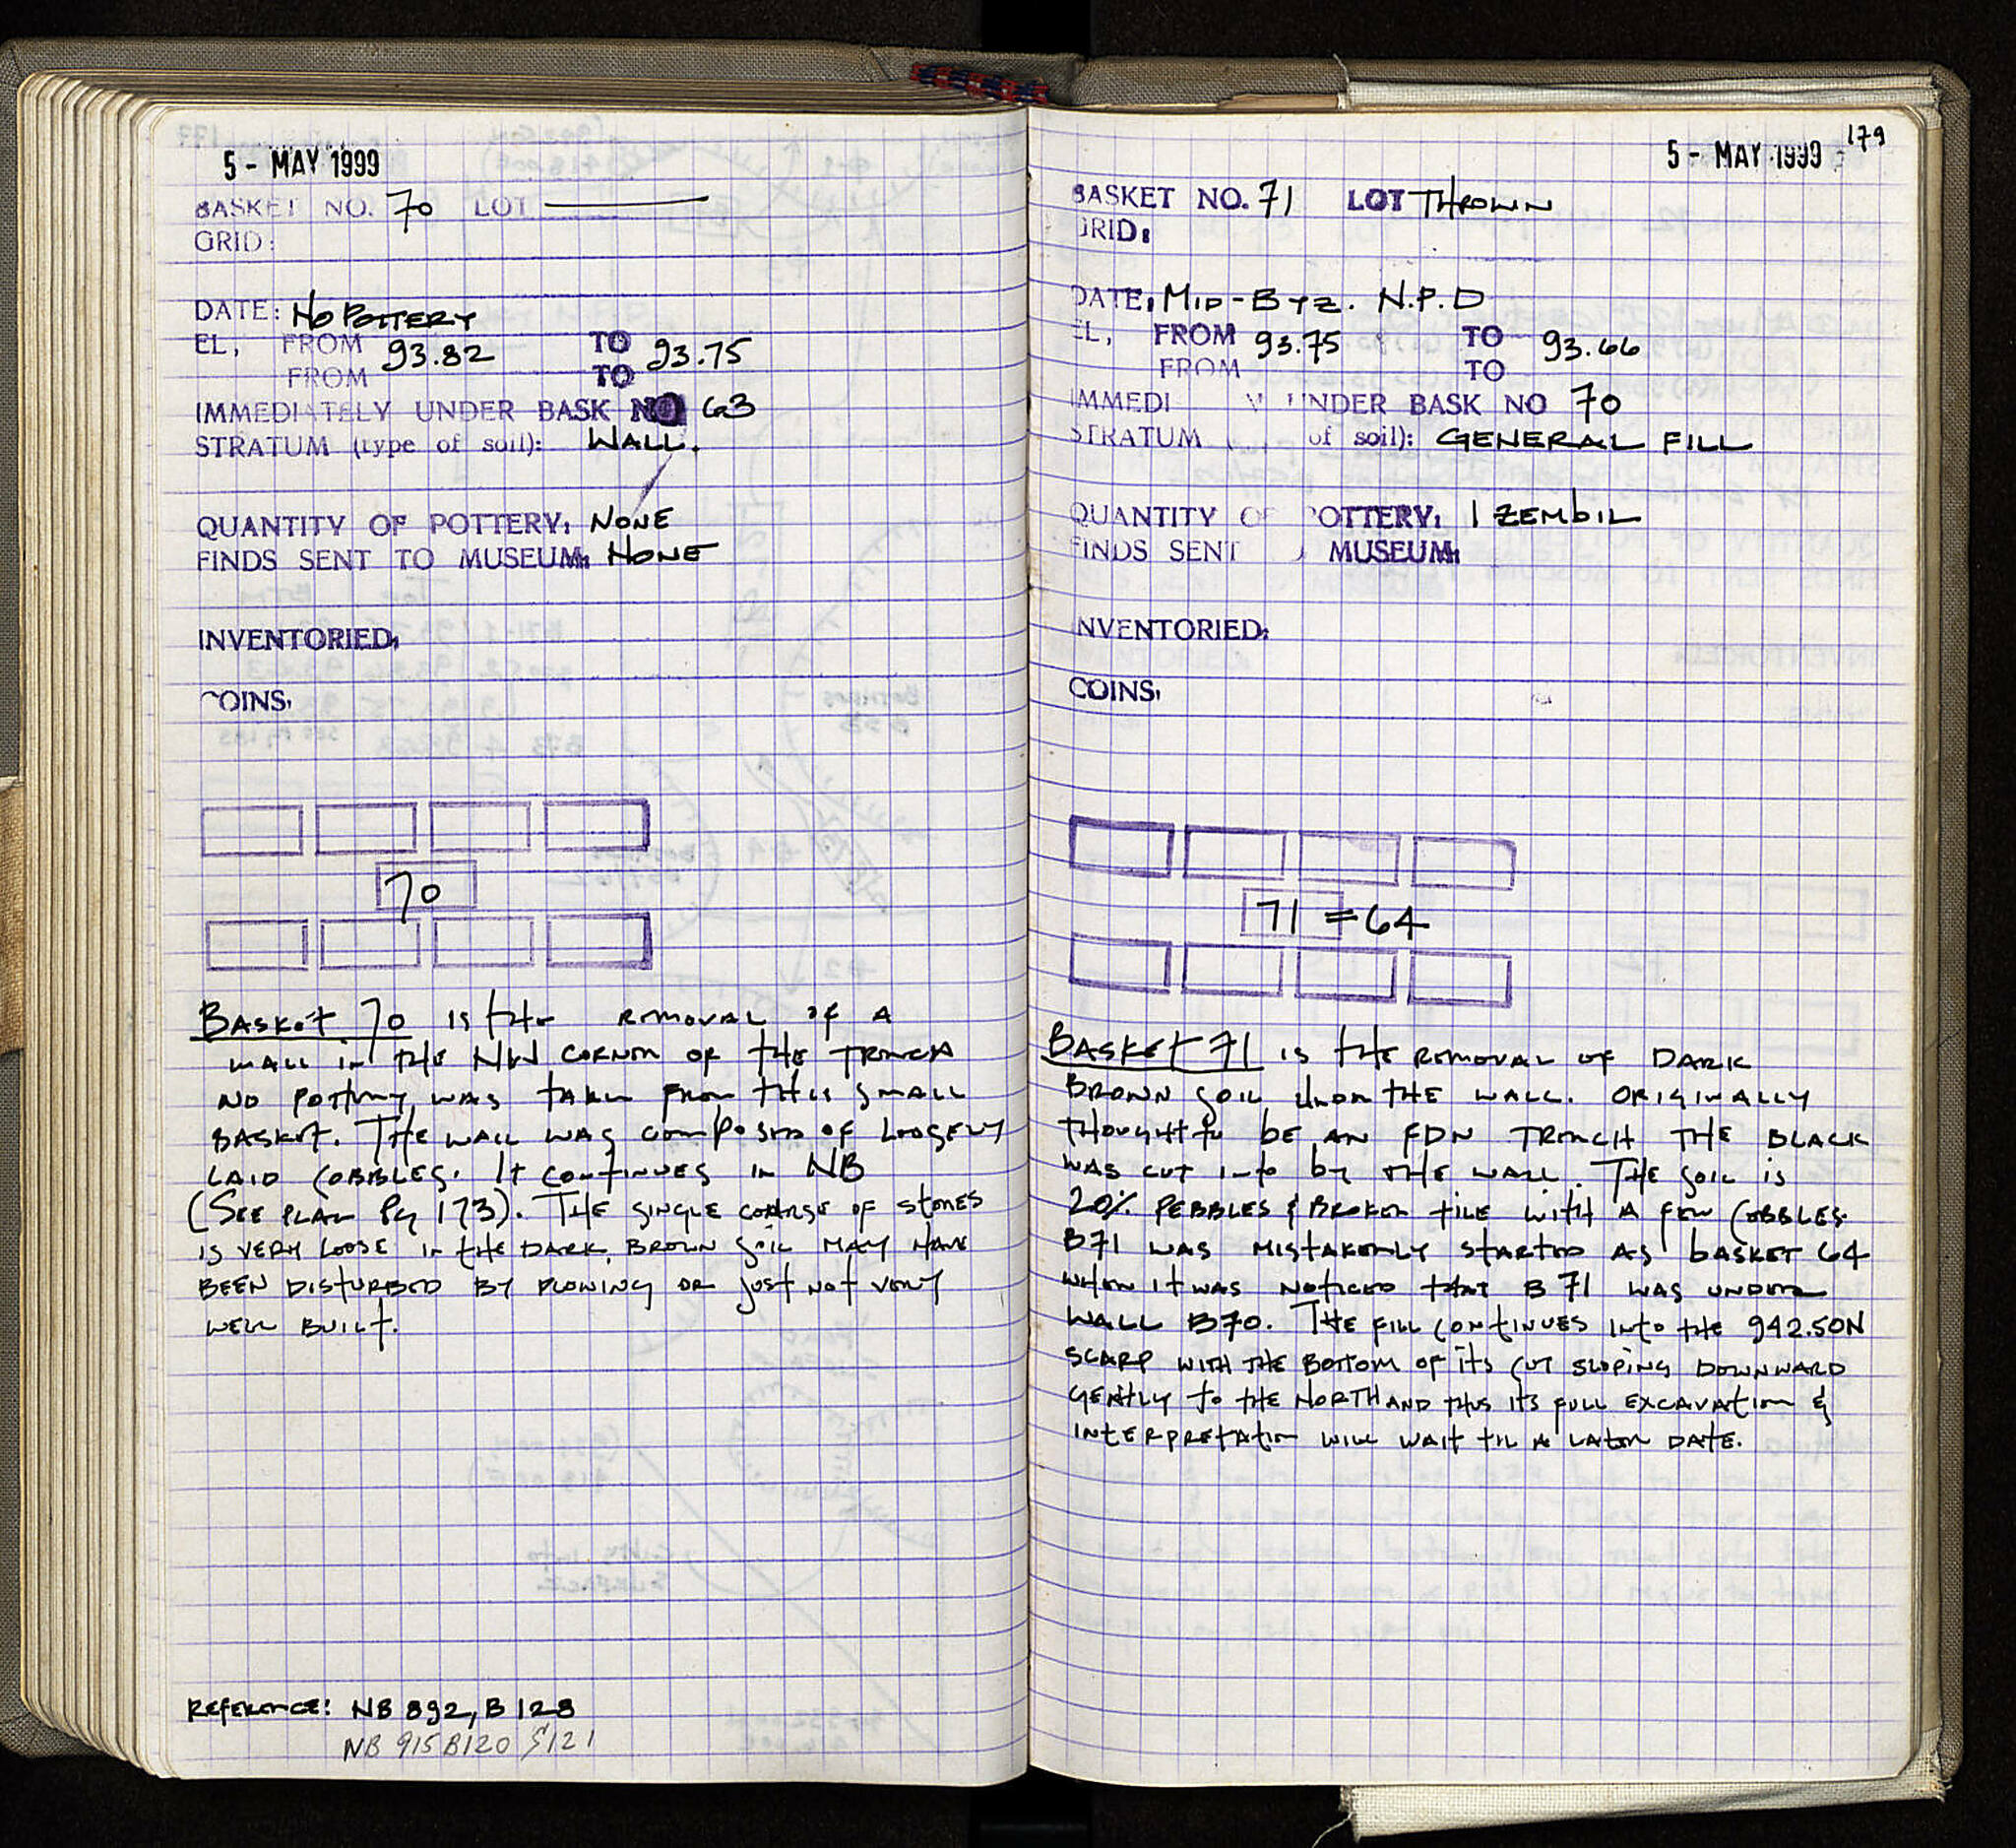 5 - MAY 1999
BASKET NO. 70 LOT
GRID:
DATE: NO POTTERY
EL, FROM 93.82 TO 93.75
FROM TO
IMMEDIATELY UNDER BASK NO 63
STRATUM (type of soil): WALL.
QUANTITY OF POTTERY: NONE
FINDS SENT TO MUSEUM: NONE
INVENTORIED:
COINS:
70
BASKET 70 IS THE REMOVAL OF A
WALL IN THE NW CORNER OF THE TRENCH
NO POTTERY WAS TAKEN FROM THIS SMALL
BASKET. THE WALL WAS COMPOSED OF LOOSELY
LAID COBBLES. IT CONTINUES IN NB
(SEE PLAN Pg 173). THE SINGLE COURSE OF STONES
IS VERY LOOSE IN THE DARK BROWN SOIL MAY HAVE
BEEN DISTURBED BY PLOWING OR JUST NOT VERY
WELL BUILT.
REFERENCE: NB 892, B 128
NB 915 B120 & 121
179
5 - MAY 1999
BASKET NO. 71 LOT THROWN
GRID:
DATE: MID-BYZ. N.P.D
EL, FROM 93.75 TO 93.66
FROM TO
IMMEDI Y UNDER BASK NO 70
STRATUM of soil): GENERAL FILL
QUANTITY OF POTTERY: 1 ZEMBIL
FINDS SENT MUSEUM:
INVENTORIED:
COINS:
71 = 64
BASKET 71 IS THE REMOVAL OF DARK
BROWN SOIL UNDER THE WALL. ORIGINALLY
THOUGHT TO BE AN FDN TRENCH THE BLACK
WAS CUT INTO BY THE WALL. THE SOIL IS
20% PEBBLES & BROKEN TILE WITH A FEW COBBLES.
B71 WAS MISTAKENLY STARTED AS BASKET 64
WHEN IT WAS NOTICED THAT B 71 WAS UNDER
WALL B70. THE FILL CONTINUES INTO THE 942.50N
SCARP WITH THE BOTTOM OF ITS CUT SLOPING DOWNWARD
GENTLY TO THE NORTH AND THUS ITS FULL EXCAVATION &
INTERPRETATION WILL WAIT TIL A LATER DATE.